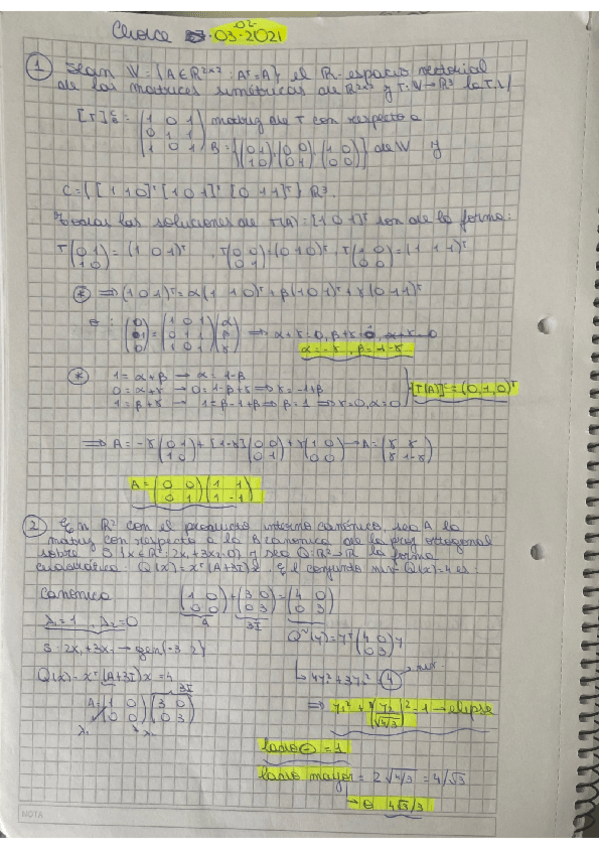 Choice 02-03-2021
① Sean W={A∈R²ˣ²: Aᵀ=A} el R-espacio vectorial
de las matrices simétricas de R²ˣ² y T: W→R³ la T.L/
[T]ᴮc = (1 0 1; 0 1 1; 1 0 1) matriz de T con respecto a
B={(0 1; 1 0), (0 0; 0 1), (1 0; 0 0)} de W y
C={[1 1 0]ᵀ [1 0 1]ᵀ [0 1 1]ᵀ} R³.
Todas las soluciones de T(A)=[1 0 1]ᵀ son de la forma:
T(0 1; 1 0) = (1 0 1)ᵀ, T(0 0; 0 1) = (0 1 0)ᵀ, T(1 0; 0 0) = (1 1 1)ᵀ
⊛ ⇒ (1 0 1)ᵀ = α(1 1 0)ᵀ + β(1 0 1)ᵀ + γ(0 1 1)ᵀ
(0; 1; 0) = (1 0 1; 0 1 1; 1 0 1)(α; β; γ) ⇒ α+γ=0,
α=-γ, β=1-γ
⊛ 1=α+β → α=1-β
0=α+γ → 0=1-β+γ ⇒ γ=-1+β
1=β+γ → 1=β-1+β ⇒ β=1 ⇒ γ=0, α=0
[T(A)]ᶜ=(0,1,0)ᵀ
⇒ A = -γ(0 1; 1 0) + [1-γ](0 0; 0 1) + γ(1 0; 0 0) → A=(γ γ; γ 1-γ)
A=(0 0; 0 1)(1 1; 1 -1)
② En R² con el producto interno canónico, sea A la
matriz con respecto a la B canónica de la proy ortogonal
sobre S{x∈R²: 2x₁+3x₂=0} y sea Q: R²→R la forma
cuadrática: Q(x)=xᵀ(A+3I)x, El conjunto niv Q(x)=4 es:
canónica (1 0; 0 0) + (3 0; 0 3) = (4 0; 0 3)
A 3I
λ₁=1, λ₂=0
S: 2x₁+3x₂ → gen(-3 2)
Q̃(y)=yᵀ(4 0; 0 3)y
Q(x)=xᵀ(A+3I)x=4
↳ 4y₁²+3y₂²=4 → niv
3I
A=(1 0; 0 0)(3 0; 0 3)
λ₁ λ₂
⇒ y₁²+(y₂/(√4/3))²=1 → elipse
lado ⊖ = 1
lado mayor = 2√4/3 = 4/√3
→ 4√3/3
NOTA